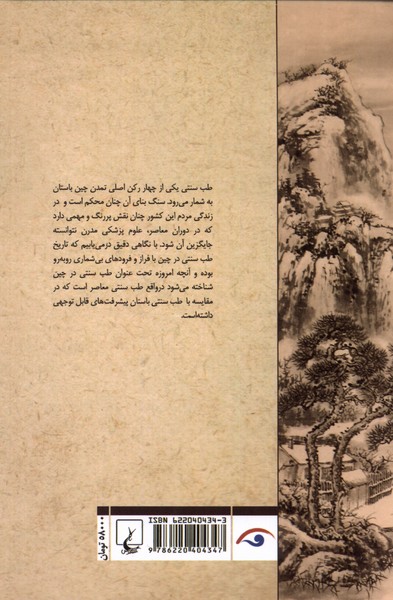 طب سنتی یکی از چهار رکن اصلی تمدن چین باستان
به شمار می‌رود. سنگ بنای آن چنان محکم است و در
زندگی مردم این کشور چنان نقش پررنگ و مهمی دارد
که در دوران معاصر، علوم پزشکی مدرن نتوانسته
جایگزین آن شود. با نگاهی دقیق درمی‌یابیم که تاریخ
طب سنتی در چین با فراز و فرودهای بی‌شماری روبه‌رو
بوده و آنچه امروزه تحت عنوان طب سنتی در چین
شناخته می‌شود درواقع طب سنتی معاصر است که در
مقایسه با طب سنتی باستان پیشرفت‌های قابل توجهی
داشته‌است.
ISBN 622040434-3
9 786220 404347
۵۸۰۰۰ تومان